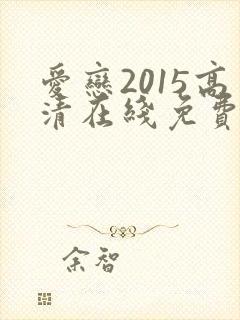 愛戀2015高
清在綫免費
余智